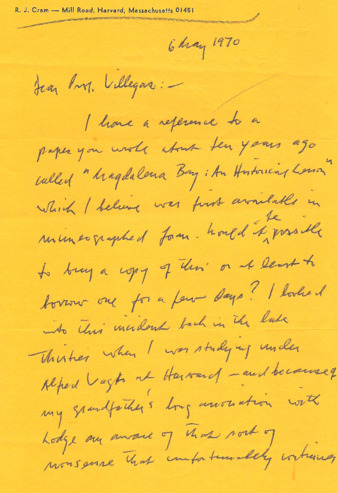 R. J. Cram — Mill Road, Harvard, Massachusetts 01451
6 May 1970
Dear Prof. Villegas:—
I have a reference to a
paper you wrote about ten years ago
called "Magdalena Bay: An Historical Lesson"
which I believe was first available in
mimeographed form. Would it be possible
to buy a copy of this or at least to
borrow one for a few days? I looked
into this incident back in the late
Thirties when I was studying under
Alfred Vagts at Harvard — and because of
my grandfather's long association with
Lodge am aware of that sort of
nonsense that unfortunately continues